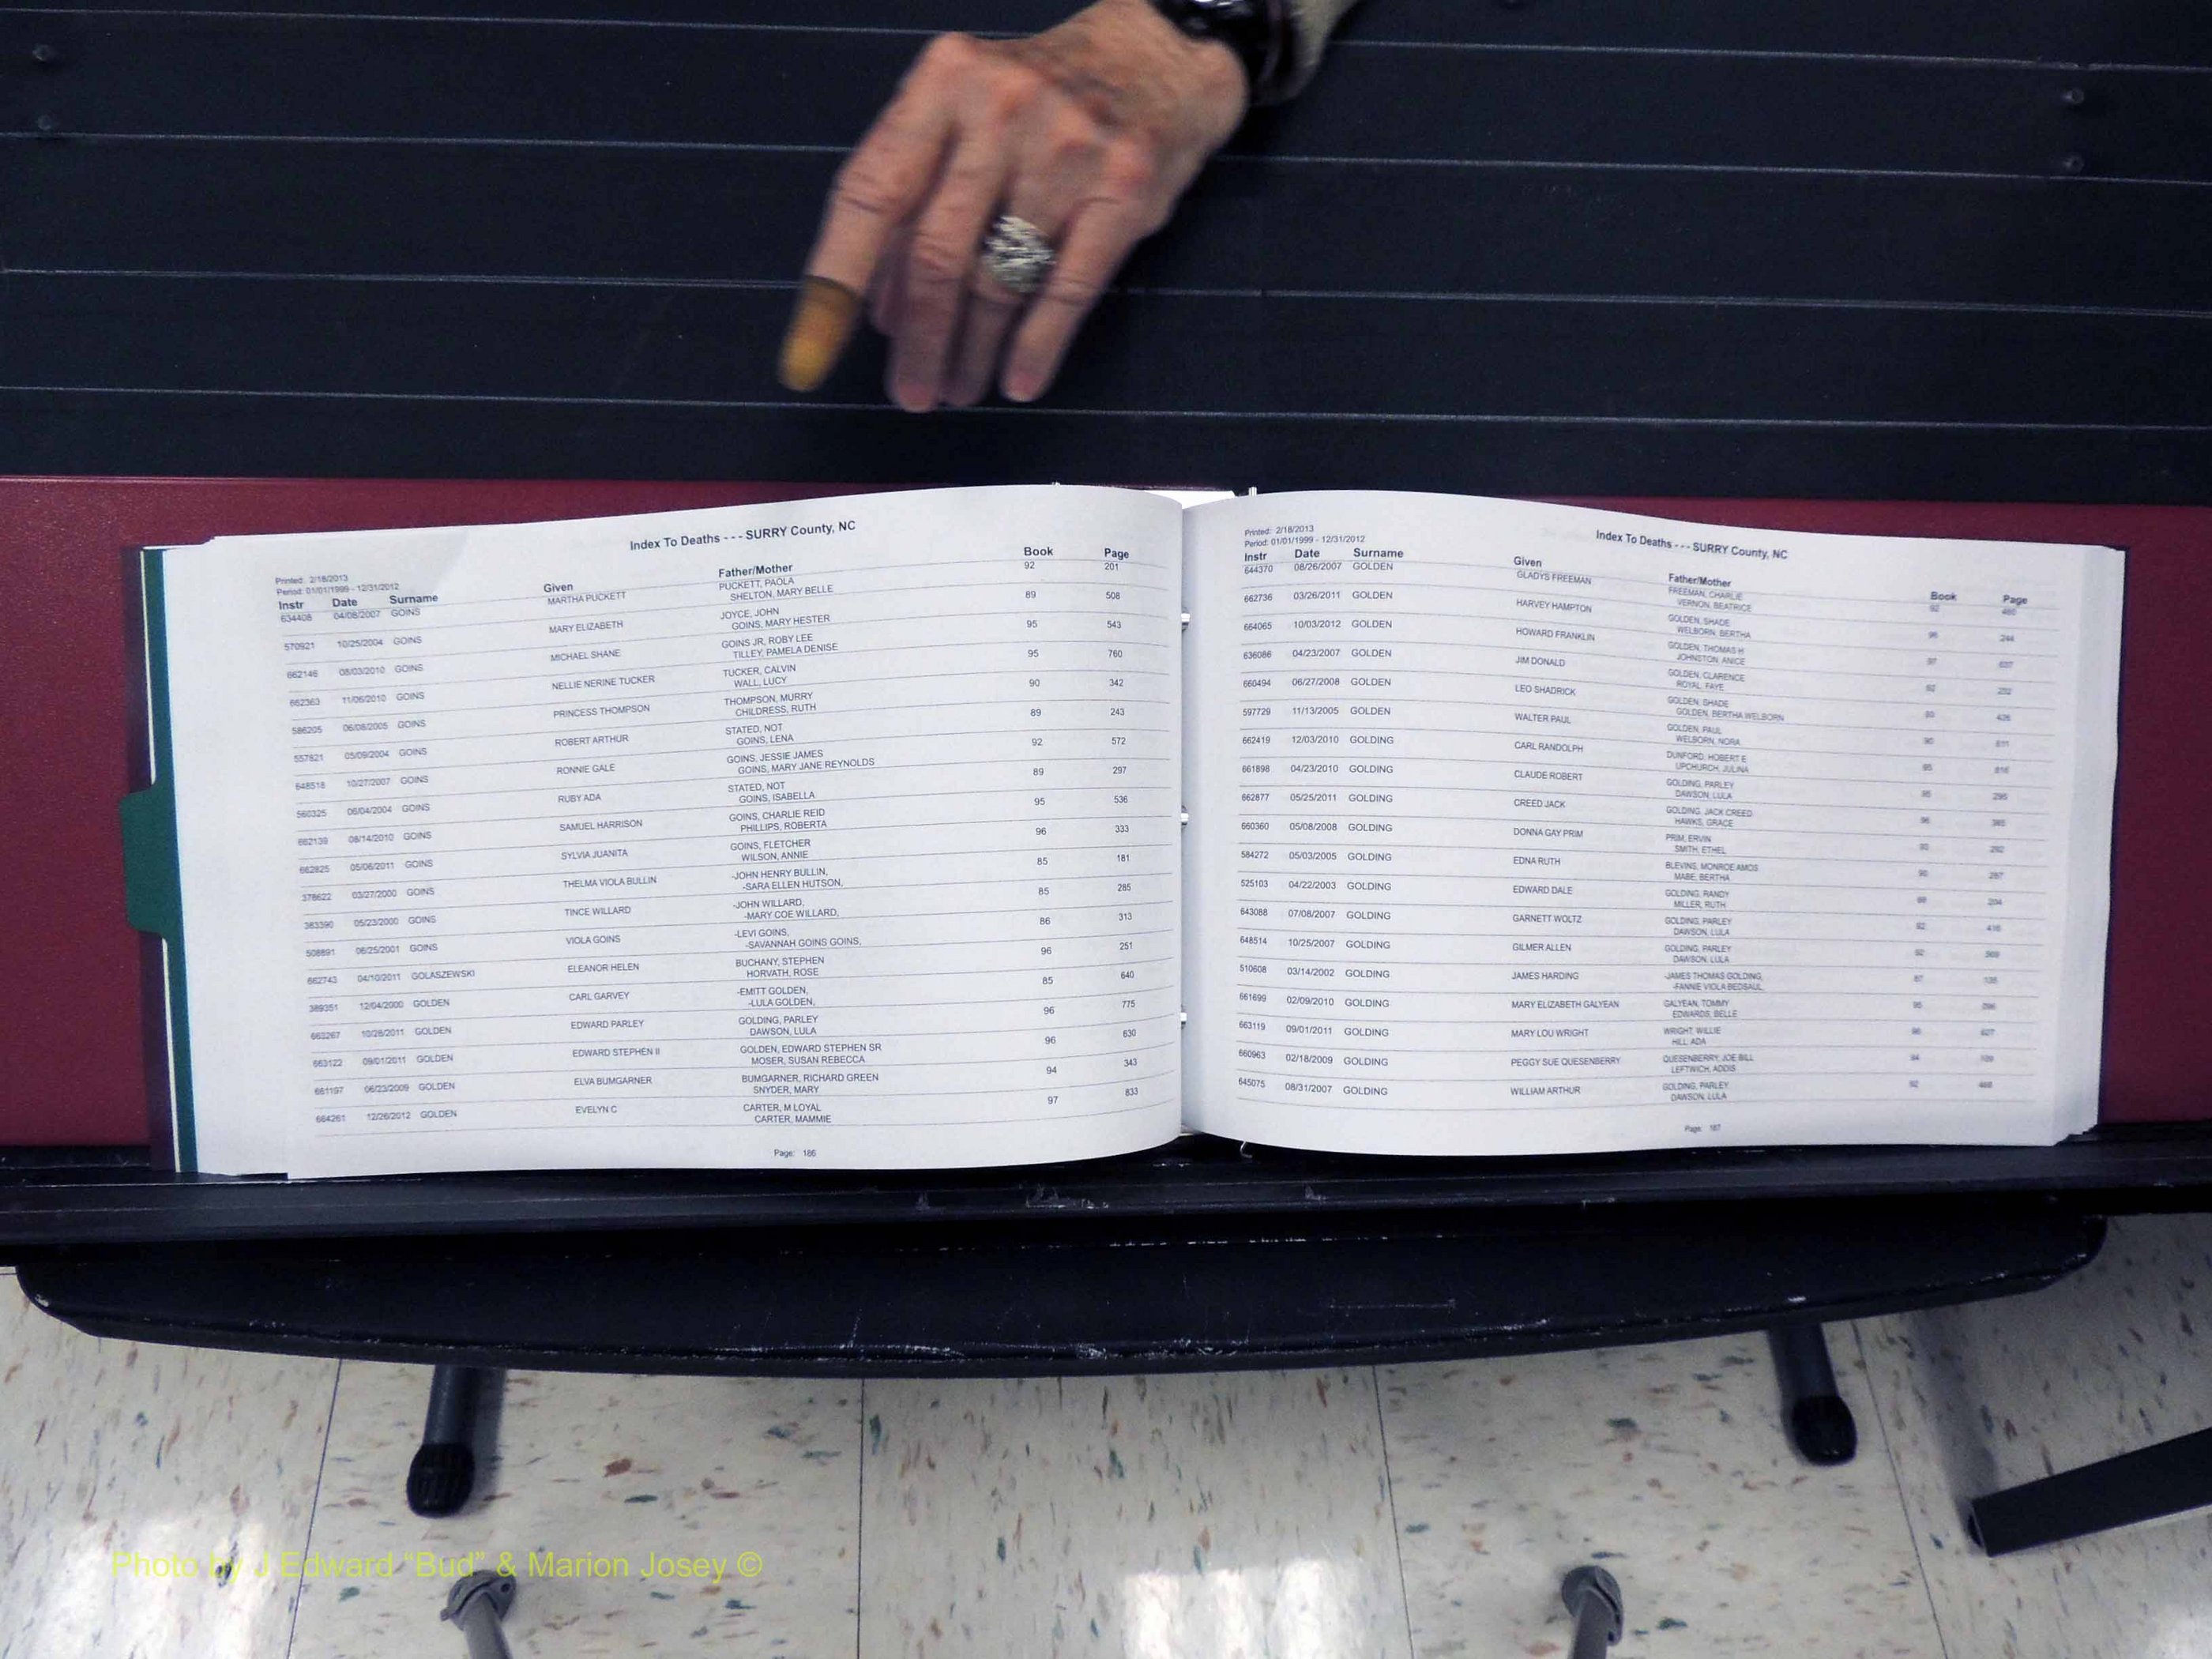 Index To Deaths - - - SURRY County, NC
Printed: 2/18/2013
Period: 01/01/1999 - 12/31/2012
Instr Date Surname Given Father/Mother Book Page
634408 04/08/2007 GOINS MARTHA PUCKETT PUCKETT, PAOLA 92 201
SHELTON, MARY BELLE
570921 10/25/2004 GOINS MARY ELIZABETH JOYCE, JOHN 89 508
GOINS, MARY HESTER
662146 08/03/2010 GOINS MICHAEL SHANE GOINS JR, ROBY LEE 95 543
TILLEY, PAMELA DENISE
662363 11/06/2010 GOINS NELLIE NERINE TUCKER TUCKER, CALVIN 95 760
WALL, LUCY
586205 06/08/2005 GOINS PRINCESS THOMPSON THOMPSON, MURRY 90 342
CHILDRESS, RUTH
557821 05/09/2004 GOINS ROBERT ARTHUR STATED, NOT 89 243
GOINS, LENA
648518 10/27/2007 GOINS RONNIE GALE GOINS, JESSIE JAMES 92 572
GOINS, MARY JANE REYNOLDS
560325 06/04/2004 GOINS RUBY ADA STATED, NOT 89 297
GOINS, ISABELLA
662139 08/14/2010 GOINS SAMUEL HARRISON GOINS, CHARLIE REID 95 536
PHILLIPS, ROBERTA
662825 05/06/2011 GOINS SYLVIA JUANITA GOINS, FLETCHER 96 333
WILSON, ANNIE
378622 03/27/2000 GOINS THELMA VIOLA BULLIN -JOHN HENRY BULLIN, 85 181
-SARA ELLEN HUTSON,
383390 05/23/2000 GOINS TINCE WILLARD -JOHN WILLARD, 85 285
-MARY COE WILLARD,
508891 06/25/2001 GOINS VIOLA GOINS -LEVI GOINS, 86 313
-SAVANNAH GOINS GOINS,
662743 04/10/2011 GOLASZEWSKI ELEANOR HELEN BUCHANY, STEPHEN 96 251
HORVATH, ROSE
389351 12/04/2000 GOLDEN CARL GARVEY -EMITT GOLDEN, 85 640
-LULA GOLDEN,
663267 10/28/2011 GOLDEN EDWARD PARLEY GOLDING, PARLEY 96 775
DAWSON, LULA
663122 09/01/2011 GOLDEN EDWARD STEPHEN II GOLDEN, EDWARD STEPHEN SR 96 630
MOSER, SUSAN REBECCA
661197 06/23/2009 GOLDEN ELVA BUMGARNER BUMGARNER, RICHARD GREEN 94 343
SNYDER, MARY
664261 12/26/2012 GOLDEN EVELYN C CARTER, M LOYAL 97 833
CARTER, MAMMIE
Page: 186
Printed: 2/18/2013
Index To Deaths - - - SURRY County, NC
Period: 01/01/1999 - 12/31/2012
Instr Date Surname Given Father/Mother Book Page
644370 08/26/2007 GOLDEN GLADYS FREEMAN FREEMAN, CHARLIE 92
VERNON, BEATRICE
662736 03/26/2011 GOLDEN HARVEY HAMPTON GOLDEN, SHADE 96 244
WELBORN, BERTHA
664065 10/03/2012 GOLDEN HOWARD FRANKLIN GOLDEN, THOMAS H 97 637
JOHNSTON, ANICE
636086 04/23/2007 GOLDEN JIM DONALD GOLDEN, CLARENCE 92
ROYAL, FAYE
660494 06/27/2008 GOLDEN LEO SHADRICK GOLDEN, SHADE 93 426
GOLDEN, BERTHA WELBORN
597729 11/13/2005 GOLDEN WALTER PAUL GOLDEN, PAUL 90
WELBORN, NORA
662419 12/03/2010 GOLDING CARL RANDOLPH DUNFORD, HOBERT E 95 816
UPCHURCH, JULINA
661898 04/23/2010 GOLDING CLAUDE ROBERT GOLDING, PARLEY 95 295
DAWSON, LULA
662877 05/25/2011 GOLDING CREED JACK GOLDING, JACK CREED 96 385
HAWKS, GRACE
660360 05/08/2008 GOLDING DONNA GAY PRIM PRIM, ERVIN 93 292
SMITH, ETHEL
584272 05/03/2005 GOLDING EDNA RUTH BLEVINS, MONROE AMOS 90 267
MABE, BERTHA
525103 04/22/2003 GOLDING EDWARD DALE GOLDING, RANDY 88 204
MILLER, RUTH
643088 07/08/2007 GOLDING GARNETT WOLTZ GOLDING, PARLEY 92 416
DAWSON, LULA
648514 10/25/2007 GOLDING GILMER ALLEN GOLDING, PARLEY 92 569
DAWSON, LULA
510608 03/14/2002 GOLDING JAMES HARDING -JAMES THOMAS GOLDING, 87 135
-FANNIE VIOLA BEDSAUL,
661699 02/09/2010 GOLDING MARY ELIZABETH GALYEAN GALYEAN, TOMMY 95 096
EDWARDS, BELLE
663119 09/01/2011 GOLDING MARY LOU WRIGHT WRIGHT, WILLIE 96 627
HILL, ADA
660963 02/18/2009 GOLDING PEGGY SUE QUESENBERRY QUESENBERRY, JOE BILL 94 109
LEFTWICH, ADDIS
645075 08/31/2007 GOLDING WILLIAM ARTHUR GOLDING, PARLEY 92 488
DAWSON, LULA
Page: 187
Photo by J Edward “Bud” & Marion Josey ©